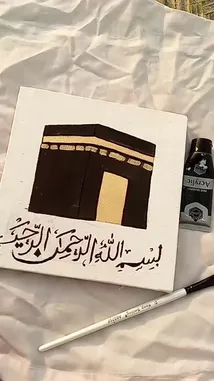 بسم الله الرحمن الرحيم
Acrylic